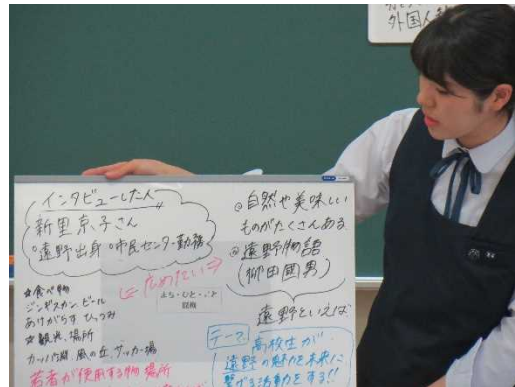 外国人
インタビューした人
新里京子さん
○遠野出身 ○市民センター勤務
☆食べ物
ジンギスカン、ビール
あけがらす ひっつみ
☆観光、場所
カッパ淵、風の丘、サッカー場
若者が使用する物 場所
広めたい
◎自然や美味しい
ものがたくさんある
◎遠野物語
(柳田国男)
遠野といえば
テーマ
高校生が
遠野の魅力を未来に
繋げる活動をする!!